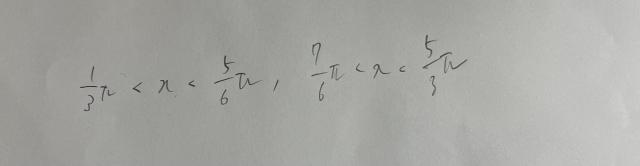 1/3 π < x < 5/6 π, 7/6 π < x < 5/3 π